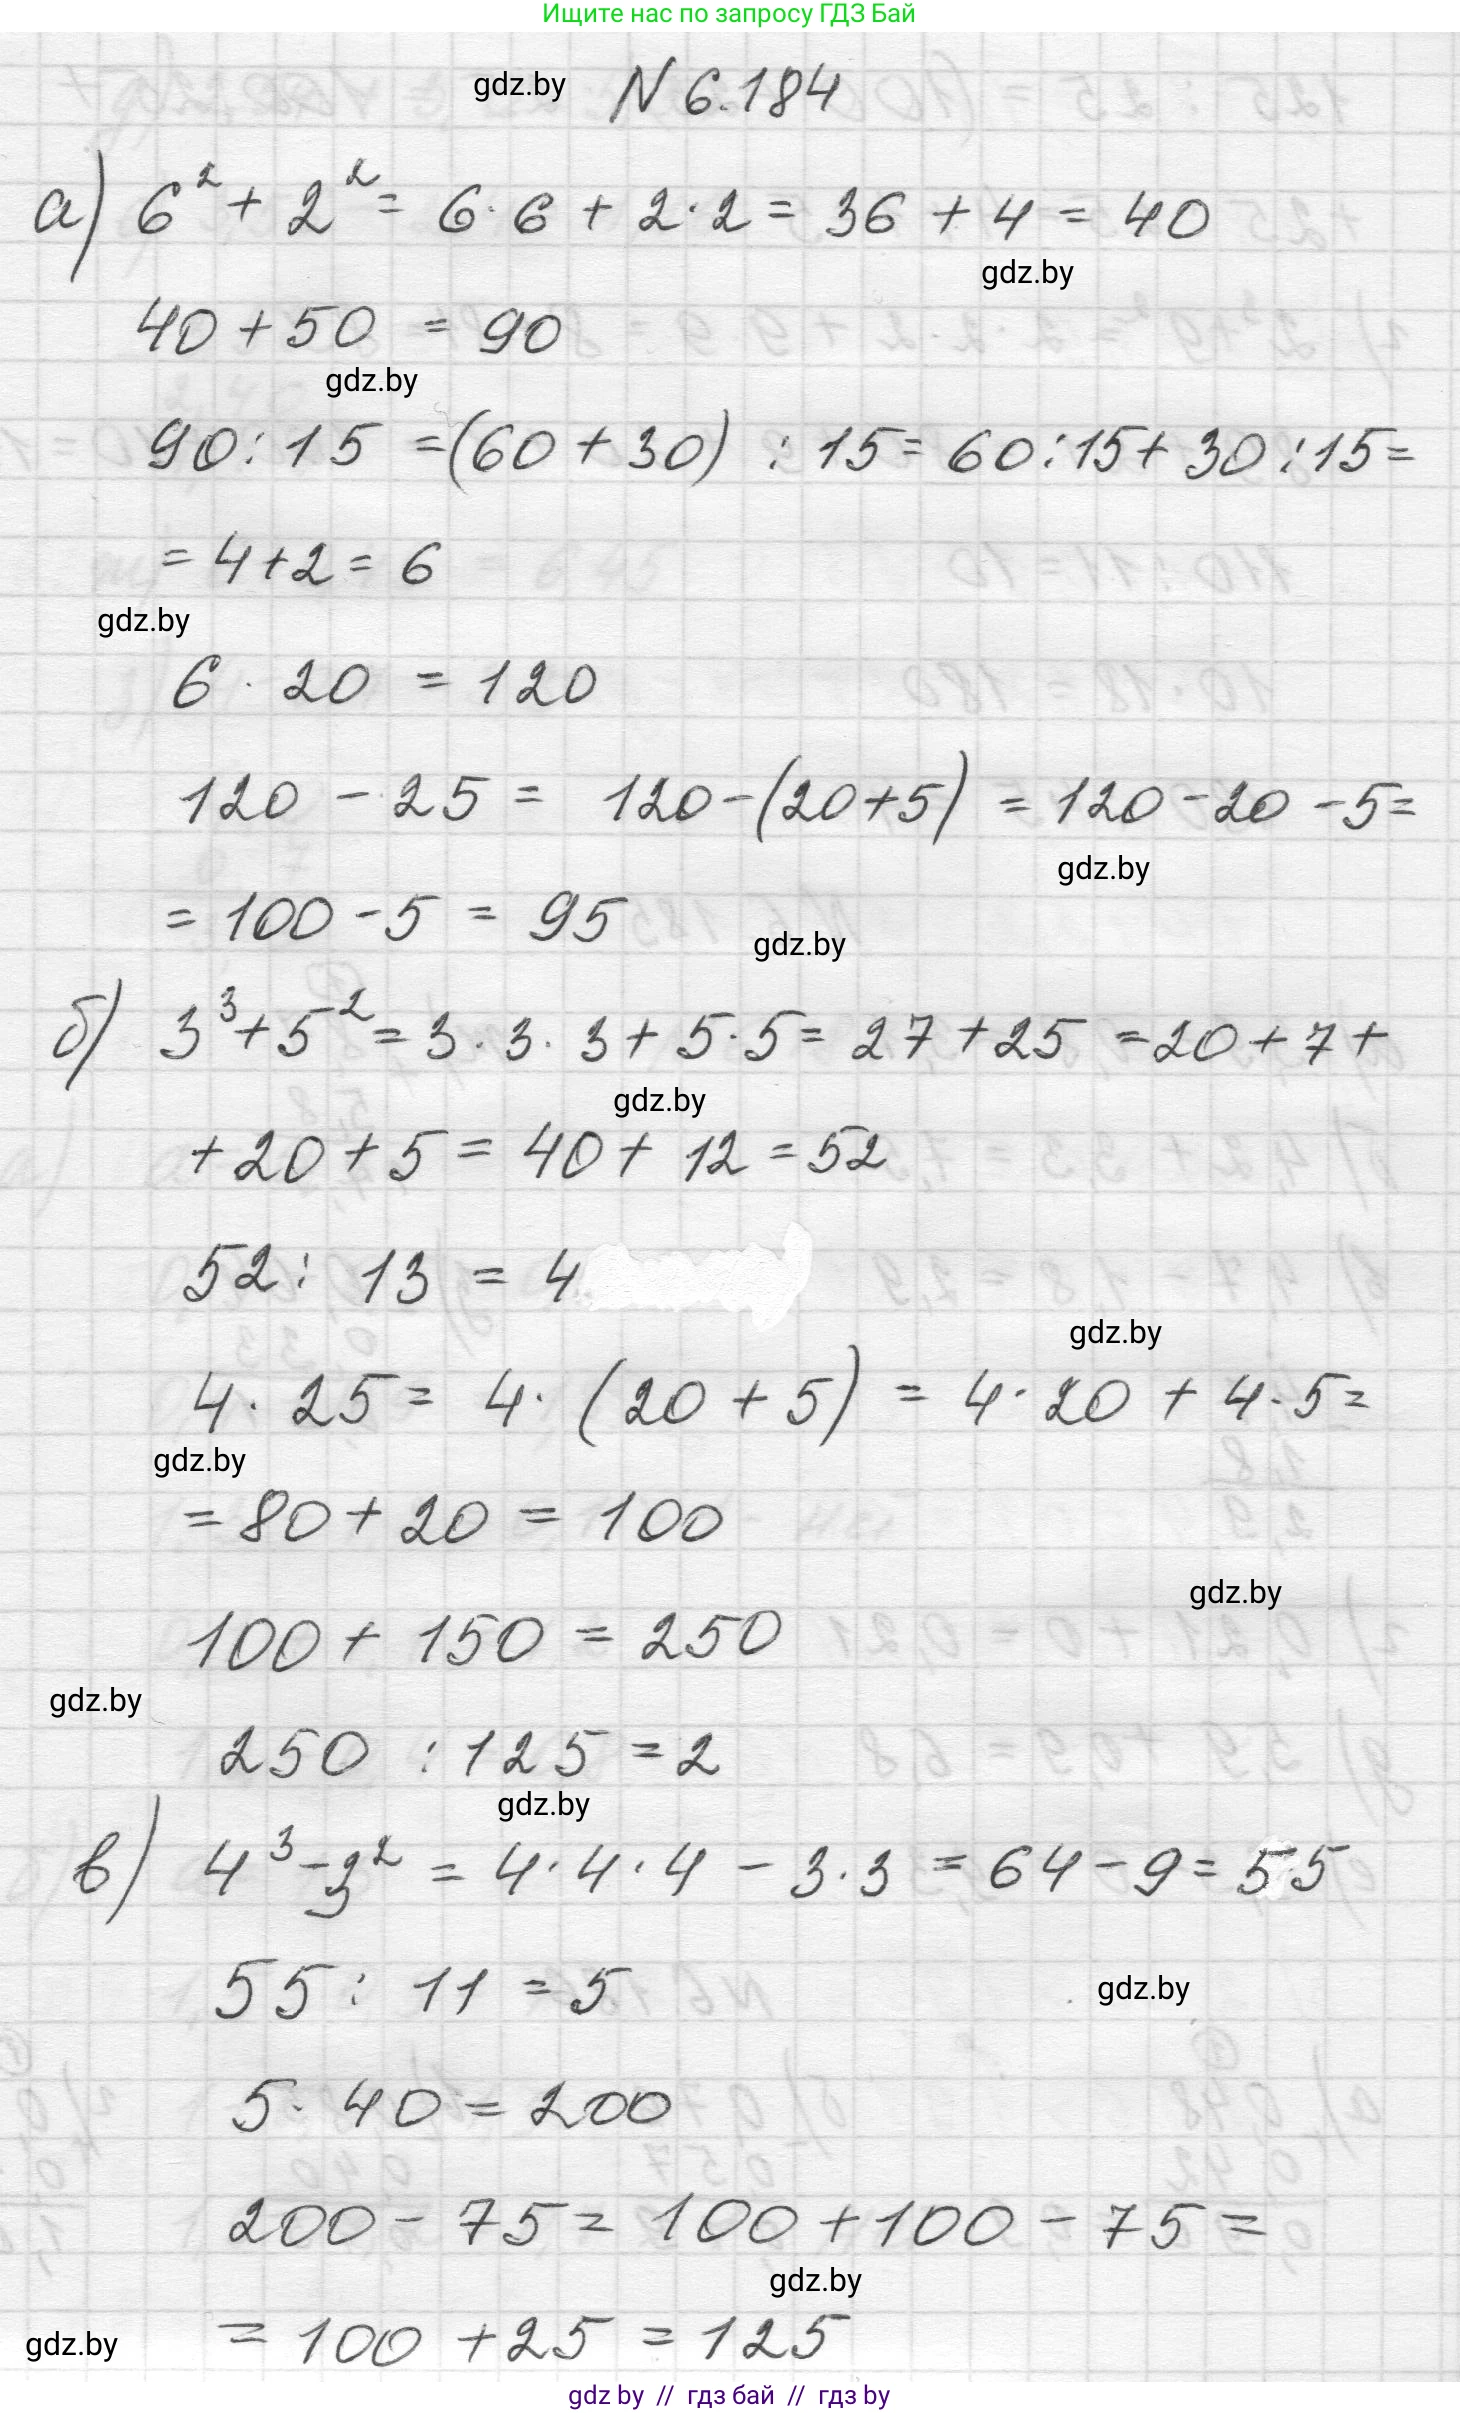 Ищите нас по запросу ГДЗ Бай
gdz.by N 6.184
а) 6² + 2² = 6 · 6 + 2 · 2 = 36 + 4 = 40
gdz.by
40 + 50 = 90
gdz.by
90 : 15 = (60 + 30) : 15 = 60 : 15 + 30 : 15 =
= 4 + 2 = 6
gdz.by
6 · 20 = 120
120 - 25 = 120 - (20 + 5) = 120 - 20 - 5 =
gdz.by
= 100 - 5 = 95
gdz.by
б) 3³ + 5² = 3 · 3 · 3 + 5 · 5 = 27 + 25 = 20 + 7 +
gdz.by
+ 20 + 5 = 40 + 12 = 52
52 : 13 = 4
gdz.by
4 · 25 = 4 · (20 + 5) = 4 · 20 + 4 · 5 =
gdz.by
= 80 + 20 = 100
gdz.by
100 + 150 = 250
gdz.by
250 : 125 = 2
gdz.by
в) 4³ - 3² = 4 · 4 · 4 - 3 · 3 = 64 - 9 = 55
55 : 11 = 5
gdz.by
5 · 40 = 200
200 - 75 = 100 + 100 - 75 =
gdz.by
= 100 + 25 = 125
gdz.by
gdz by // гдз бай // гдз by